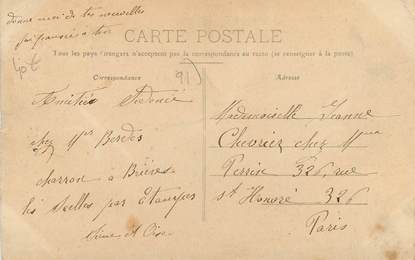 donne moi de tes nouvelles
j'ai pensée a toi
CARTE POSTALE
Tous les pays étrangers n'acceptent pas la correspondance au recto (se renseigner à la poste)
Correspondance
Adresse
91
Amitiés Sidonie
chez Mr Bordes
charron à Brières
les Scelles par Etampes
Seine et Oise
Mademoiselle Jeanne
Chevrier chez Mme
Perrin 326, rue
St Honoré 326
Paris